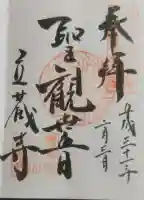 奉拝
平成三十一年
二月三日
聖観世音
蔵寺